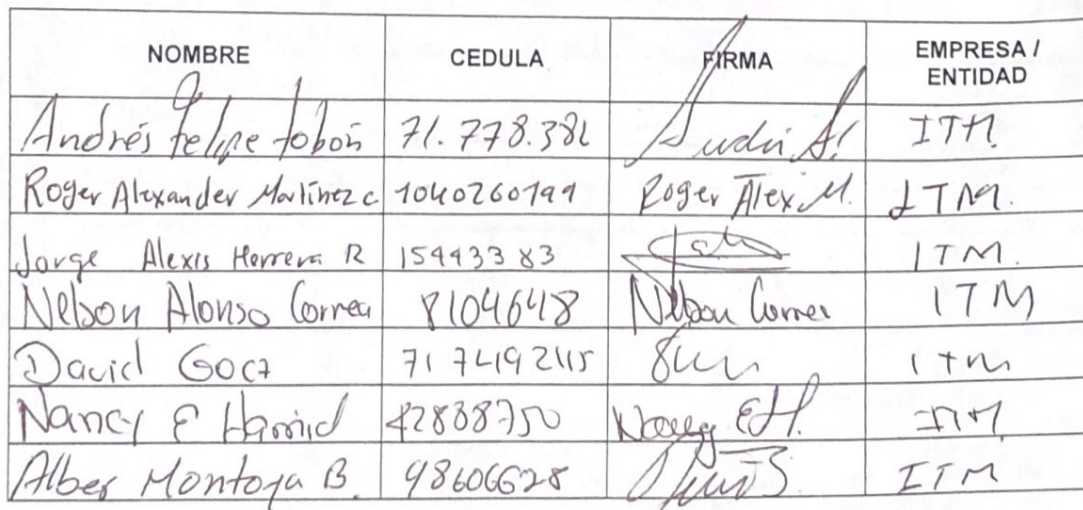 NOMBRE CEDULA FIRMA EMPRESA / ENTIDAD
Andrés Felipe Tobón 71.778.382 ITM
Roger Alexander Martínez C 1040260199 Roger Alex M. ITM.
Jorge Alexis Herrera R 15443383 ITM.
Nelson Alonso Correa 8104648 Nelson Correa ITM
David ITM
Nancy E 42888750 Nancy EH. ITM
Alber Montoya B. 98606628 ITM